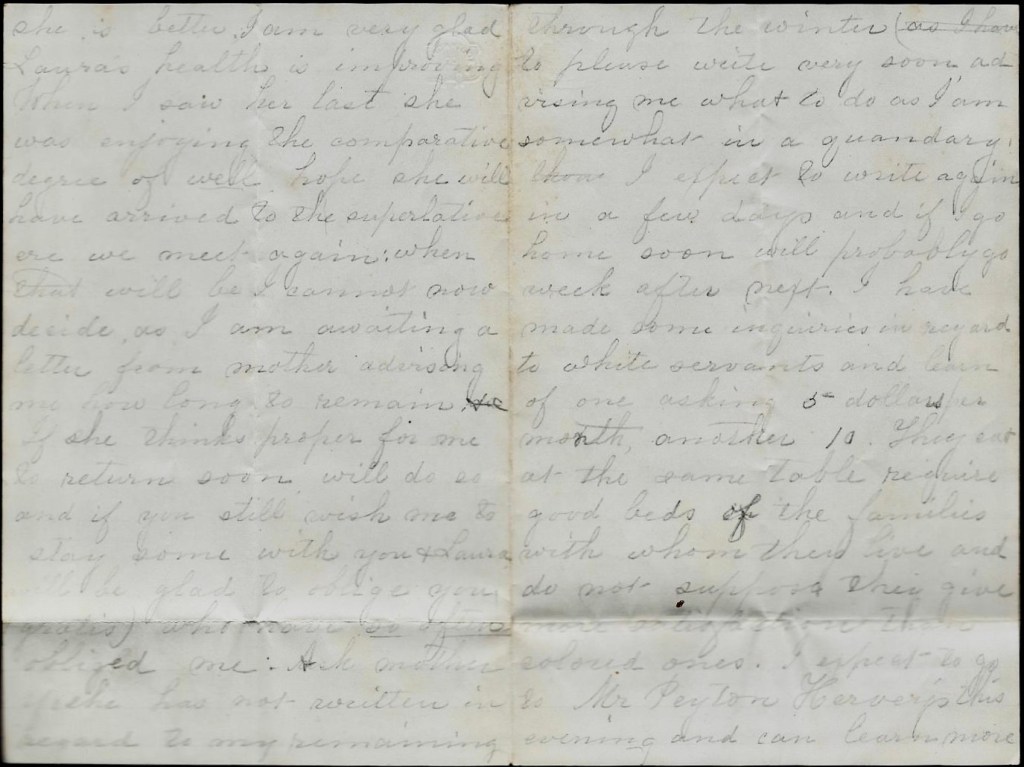 she is better. I am very glad
Laura's health is improving
When I saw her last she
was enjoying the comparative
degree of well, hope she will
have arrived to the superlative
ere we meet again: when
that will be I cannot now
decide, as I am awaiting a
letter from mother advising
me how long to remain.
If she thinks proper for me
to return soon will do so
and if you still wish me to
stay some with you & Laura
will be glad to oblige you
(gratis) who have so often
obliged me. Ask mother
if she has not written in
regard to my remaining
through the winter (as I have
to please write very soon ad
vising me what to do as I am
somewhat in a quandary.
I expect to write again
in a few days and if I go
home soon will probably go
week after next. I have
made some inquiries in regard
to white servants and learn
of one asking 5 dollars per
month, another 10. They eat
at the same table require
good beds of the families
with whom they live and
do not suppose they give
more satisfaction than
colored ones. I expect to go
to Mr Peyton this
evening and can learn more